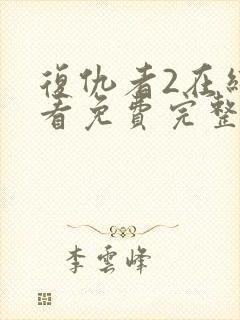 復仇者2在
看免費完整
李雲峰